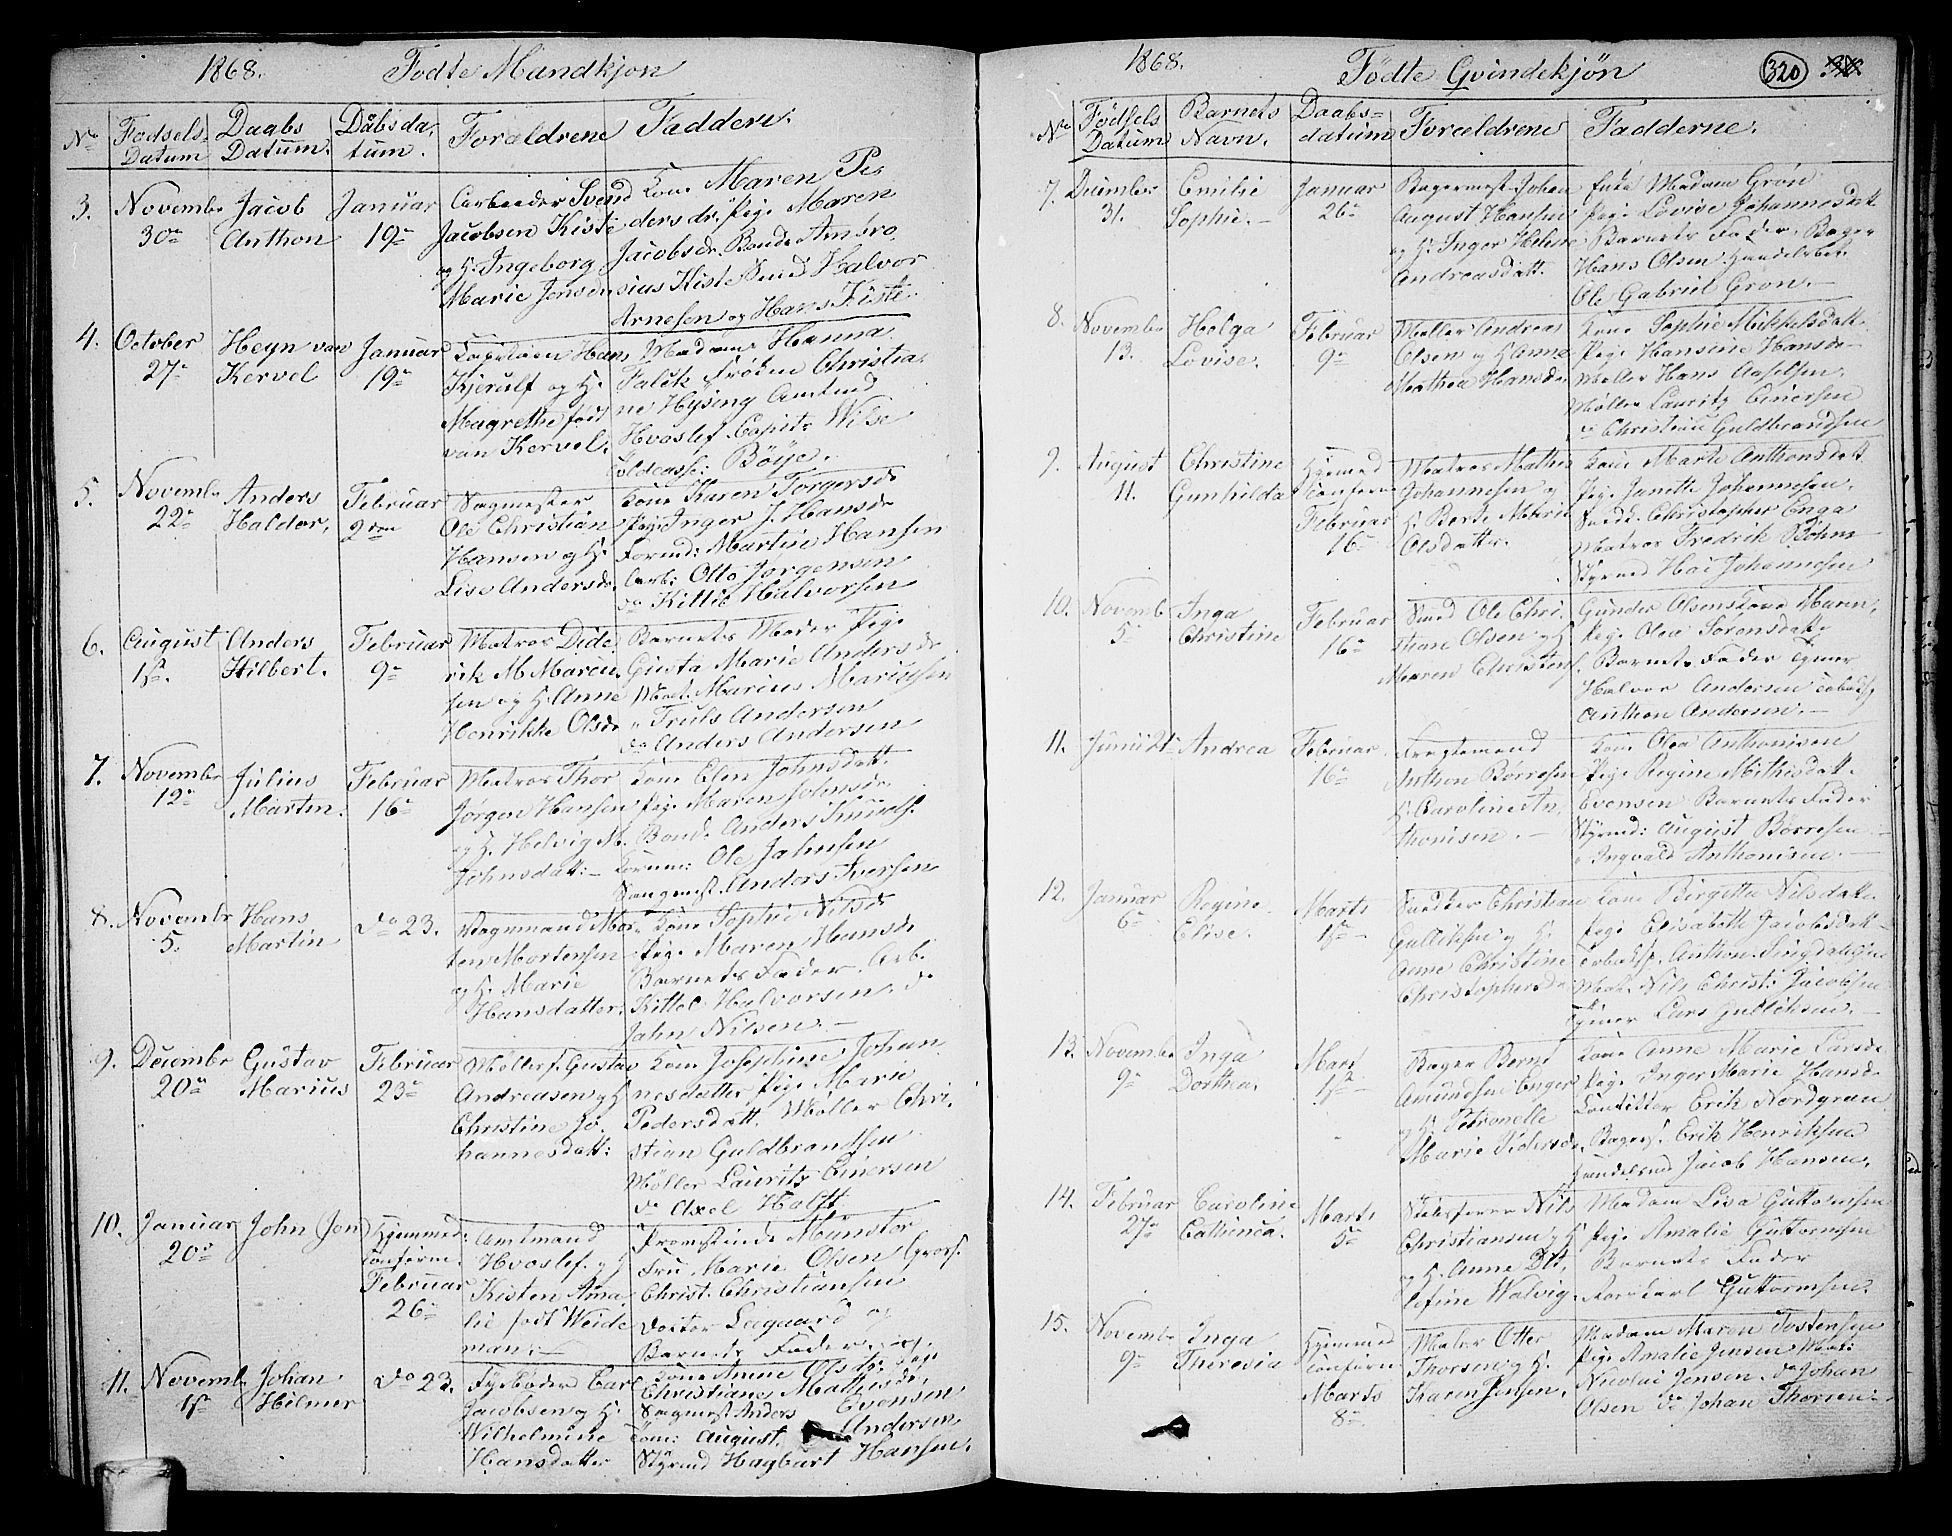 1868. Fodte Mandkjøn
No Fodsels Datum Daabs Datum. Dåbsda, tum. Foraldrene Faddere.
3. November 30te Jacob Anthon Januar 19de
Arbeider Svend
Jacobsen Kiste
og H. Ingeborg
Marie Jensd.
Kone Maren Pe,
dersdr, Pige Maren
Jacobsdr. Bonde Ambro,
sius Kiste Smed Halvor
Arnesen og Hans Kiste.
4. October 27de Heyn van Kervel Januar 19de
Capitaien Hans
Kjerulf og H.
Magrethe født
van Kervel.
Madame Hanna
Falck Frøken Christia,
ne Hysing Amtmd
Hvoslef Capit. Wilse
Toldcasse: Böije.
5. Novembr 22de Anders Haldor, Februar 2den
Sagmester
Ole Christian
Hansen og H.
Lise Andersdr
Kone Karen Torgersdr
Pige Inger J. Hansdr
Formd: Martin Hansen
Arb: Otto Jørgensen
do Kittil Halvorsen
6. August 1st. Anders Hilbert. Februar 9de
Matros Dide,
rik M Marcu,
sen og H. Anne
Henrikke Olsdr
Barnets Moder Pige
Gusta Marie Andersdr
Mat. Marius Mariusen
" Truls Andersen
do Anders Andersen
7. Novembr 12te Julius Martin. Februar 16de
Matros Thor
Jørgen Hansen
og H. Helvig M.
Johnsdatt:
Kone Elen Johnsdatt.
Pige Maren Johnsdr.
Bonde Anders
Ole Jahnsen
Sangmest. Anders Iversen
8. Novembr 5. Hans Martin do 23.
Vognmand Mor,
ten Mortensen
og H. Marie
Hansdatter.
Kone Sophie Nilsdr
Pige Maren Hansdr
Barnets Fader. Arb.
Kittel Halvorsen. do
Jahn Nilsen.
9. Decembr 20de Gustav Marius Februar 23de
Møllers. Gustav
Andreasen og H
Christine Jo,
hannesdatt:
Kone Josephine Johan
nesdatter Pige Marn
Pedersdatt. Møller Chri,
stian Guldbrandsen
Møller Lauritz Einersen
do Axel Holst
10. Januar 20de John (Jon) Hjemmed: confirm. Februar 26de
Amtmand
Hvoslef. og H
Kisten Ama,
lie født Weide
man.
Frue Marie Olsen Gross.
Christ. Christiansen
Doctor Lægaard og
Barnets Fader.
11. Novemb. 1st Johan Hilmer do 23.
Fyrbøder Carl
Jacobsen og H
Wilhelmine
Hansdatter
Kone Anne Olsdr. Pige
Christiane Mathisdr,
Sagmest. Anders Evensen
August. Andersen
Styrmd Hagbart Hansen.
1868. Födte Qvindekjön 320
No Födsels Datum Barnets Navn. Daabs= datum Forældrene Fadderne.
7. December 31. Emilie Sophie. Januar 26de
Bagermest. Johan
August Hansen
og H. Inger Helene
Andreasdatt.
Enke Madam Grøn
Pige Lovise Johannesdatt
Barnets Fader. Bager
Hans Olsen Handelsbet.
Ole Gabriel Grøn.
8. Novembr 13. Helga Lovise. Februar 9de
Møller Andreas
Olsen og H Anne
Mathea Hansdr
Kone Sophie Mikkelsdatt.
Pige Hansine Hansdr
Møller Hans Axelsen.
Møller Lauritz Einersen
do Christian Guldbrandsen
9. August 11. Christine Gunhilda Hjemmed confirm Februar 16de
Matros Mathis
Johannesen og
H. Berte Marie
Olsdatter.
Kone Marte Anthonsdatt
Pige Janette Johannesen.
Snedk. Christopher Enga
Matros Fredrik Böhm
Styrmd Johannesen
10. Novemb 5te Inga Christine Februar 16de
Smed Ole Chri,
stian Olsen og H
Maren Christens.
Gunder Olsens Kone Maren,
Pige Olea Sorensdatt.
Barnets Fader Tømer
Halvor Andersen
Anthon Andersen.
11. Junii 21 Andrea Februar 16de
Fragtemand
Anthon Börresen
H. Caroline An,
thonisen.
Kone Olea Anthonisen
Pige Regine Mathisdatt.
Evensen Barnets Fader
Styrmd: August Börresen
" Ingvald Anthonisen.
12. Januar 6te Regine Elise. Marts 1ste
Snedker Christian
Gulliksen og H.
Anne Christine
Christophersdr
Kone Birgitta Nilsdatt.
Pige Elisabeth Jacobsdatt
Mat. Nils Christ: Jacobsen
Tømer Lars Gulliksen.
13. Novembr 9de Inga Dorthea. Mart 1ste
Bager Bernt
Amundsen Enger
og H. Petronelle
Marie Pedersdr.
Kone Anne Marie Larsdr
Pige Inger Marie Hansdr
Conditter Erik Nordgran
Bagers. Erik Henriksen
Handelsmd Jacob Hansen.
14. Februar 27de Caroline Cathinca. Marts 5te
Skibsfører Nils
Christiansen og H
og H. Anne Del,
lefine Walvig.
Madam Lisa Guttormsen
Pige Amalie Guttormsen
Barnets Fader
Carl Guttormsen.
15. Novembr 9de Inga Theresia Hjemmed confirm Marts 8de
Maler Otto
Thorsen og H.
Karen Jensen.
Madam Maren Tostensen
Pige Amalie Jensen Mat:
Nicolai Jensen. do Johan
Olsen do Johan Thorsen